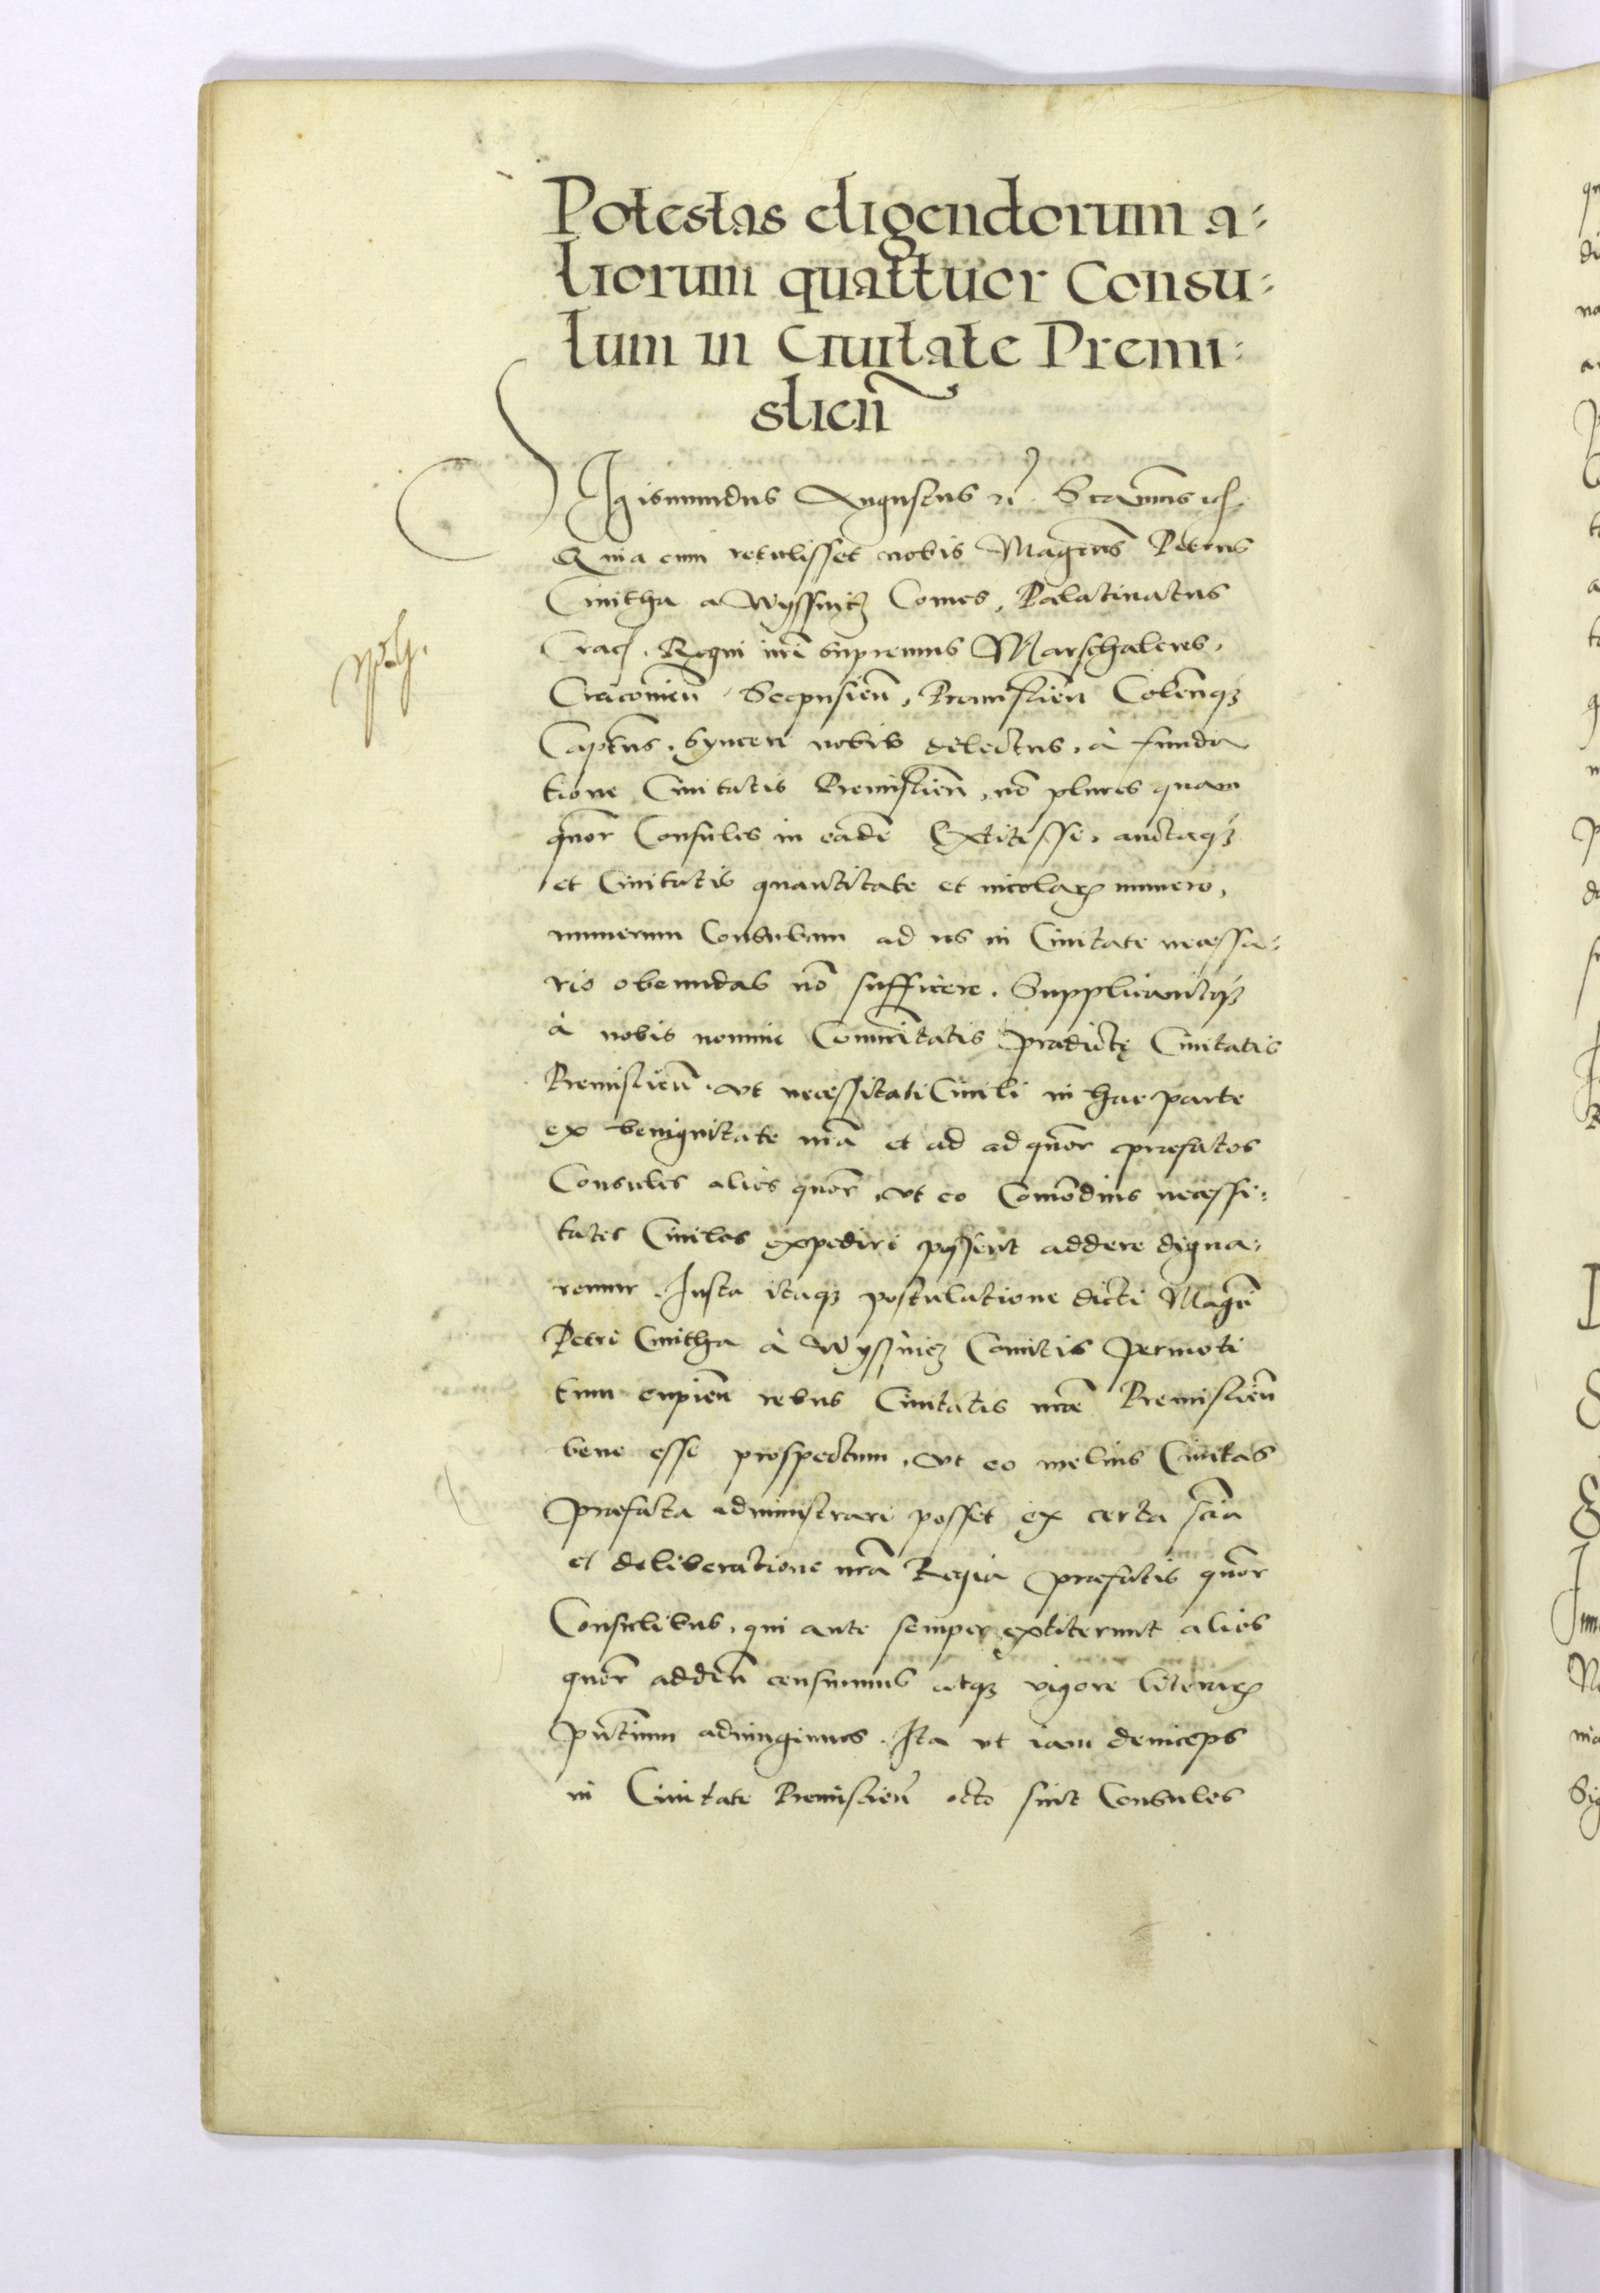 Potestas eligendorum a-
liorum quattuor Consu-
lum in Ciuitate Premi-
slien̄
Sigismundus Augustus
Quia cum retulisset nobis Magcus Petrus
Cmitha a Wyssnicz Comes, Palatinatus
Crac. Regni nri supremus Marschalcus,
Cracovien̄ Scepusien̄, Premislien̄ Colen̄qz
Captus. syncere nobis dilectus. à funda
tione Ciuitatis Premislien̄, nō plures quam
quor Consules in eadē Extitisse. auctaqz
et Ciuitatis quantitate et incolaꝝ numero,
numerum Consulum ad res in Ciuitate necessa-
rio obeundas nō sufficere. Supplicauitqz
à nobis nomine Comunitatis prædictę Ciuitatis
Premislien̄. vt necessitati Ciuili in hac parte
ex benignitate nrā et ad ad quor præfatos
Consules alios quor, vt eo Comodius necessi-
tates Ciuiles expediri possent addere digna-
remur. Iusta itaqz postulatione dicti Magci
Petri Cmitha à Wyssnicz Comitis permoti
tum cupien̄ rebus Ciuitatis nræ Premislien̄
bene esse prospectum, vt eo melius Ciuitas
præfata administrari posset ex certa scia
et deliberatione nrā Regia præfatis quor
Consulibus. qui ante semper extiterunt alios
quor adden̄ censuimus atqz vigore literaꝝ
pñtium adiungimus. Ita vt iam deinceps
in Ciuitate Premislien̄ octo sint Consules